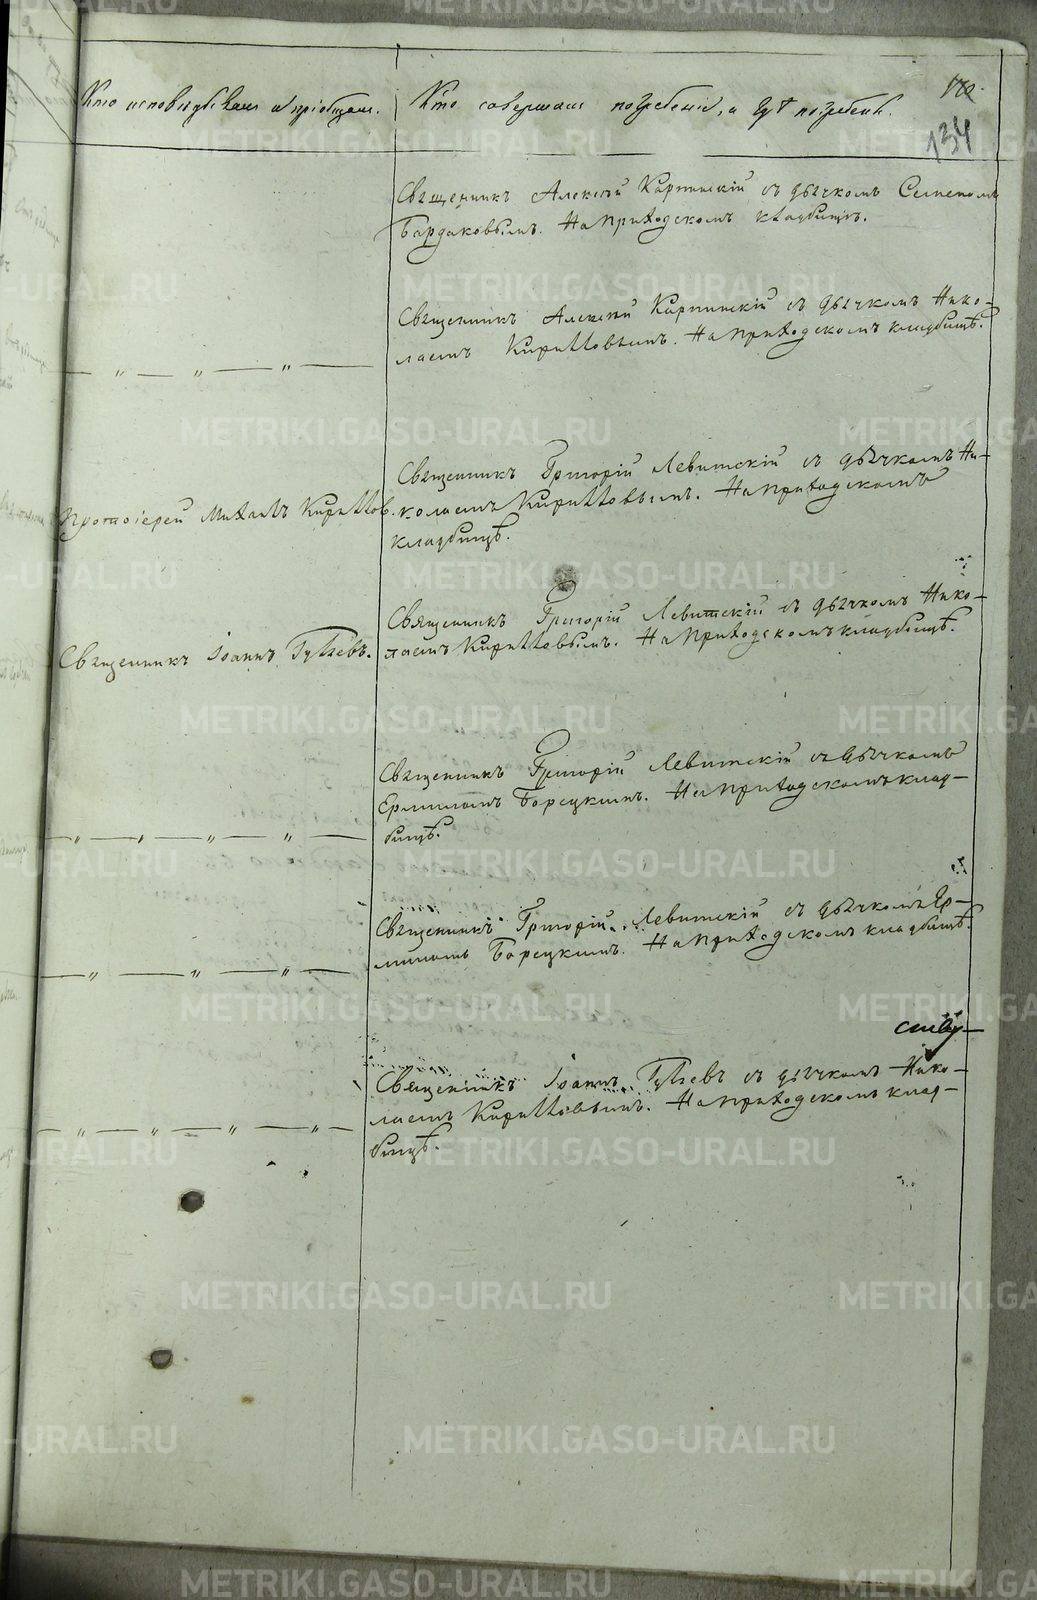 Кто исповѣдывалъ и пріобщалъ.
Кто совершалъ погребеніе, и гдѣ погребены.
134
Священникъ Алексѣй Карпинскій съ дьячкомъ Семеномъ
Бардаковымъ. На приходскомъ кладбищѣ.
Священникъ Алексѣй Карпинскій съ дьячкомъ Нико-
лаемъ Кирилловымъ. На приходскомъ кладбищѣ.
— " — " — " —
Протоіерей Михаилъ Кирилловъ.
Священникъ Григорій Левитскій съ дьячкомъ Ни-
колаемъ Кирилловымъ. На приходскомъ
кладбищѣ.
Священникъ Іоаннъ Гуляевъ.
Священникъ Григорій Левитскій съ дьячкомъ Нико-
лаемъ Кирилловымъ. На приходскомъ кладбищѣ.
— " — " — " — " —
Священникъ Григорій Левитскій съ дьячкомъ
Ермиломъ Борецкимъ. На приходскомъ клад-
бищѣ.
— " — " — " —
Священникъ Григорій Левитскій съ дьячкомъ Ер-
миломъ Борецкимъ. На приходскомъ кладбищѣ.
— " — " — " — " —
Священникъ Іоаннъ Гуляевъ съ дьячкомъ Нико-
лаемъ Кирилловымъ. На приходскомъ клад-
бищѣ.
METRIKI.GASO-URAL.RU